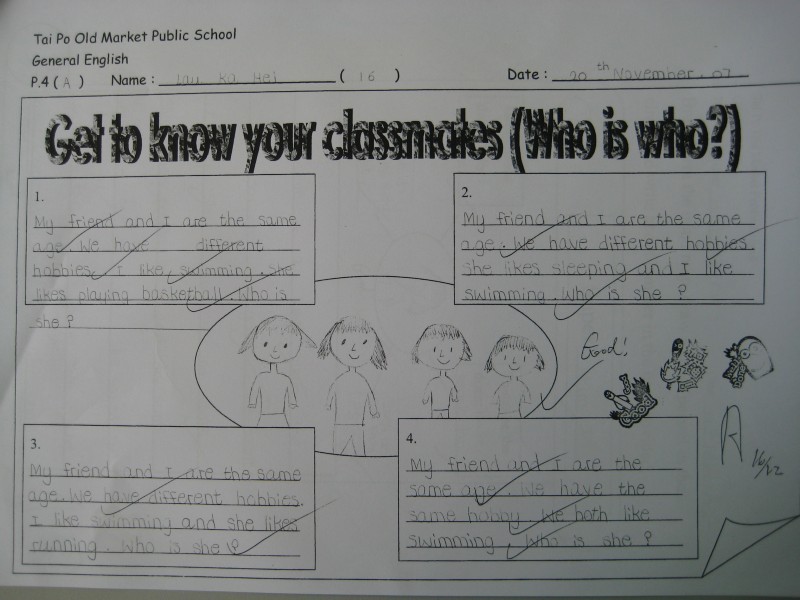 Tai Po Old Market Public School
General English
P.4 ( A ) Name : Lau Ka Hei ( 16 ) Date : 20th November, 07
Get to know your classmates (Who is who?)
1.
My friend and I are the same
age. We have different
hobbies. I like swimming. She
likes playing basketball. Who is
she?
2.
My friend and I are the same
age. We have different hobbies.
She likes sleeping and I like
swimming. Who is she?
Good!
3.
My friend and I are the same
age. We have different hobbies.
I like swimming and she likes
running. Who is she?
4.
My friend and I are the
same age. We have the
same hobby. We both like
swimming. Who is she?
A
16/12